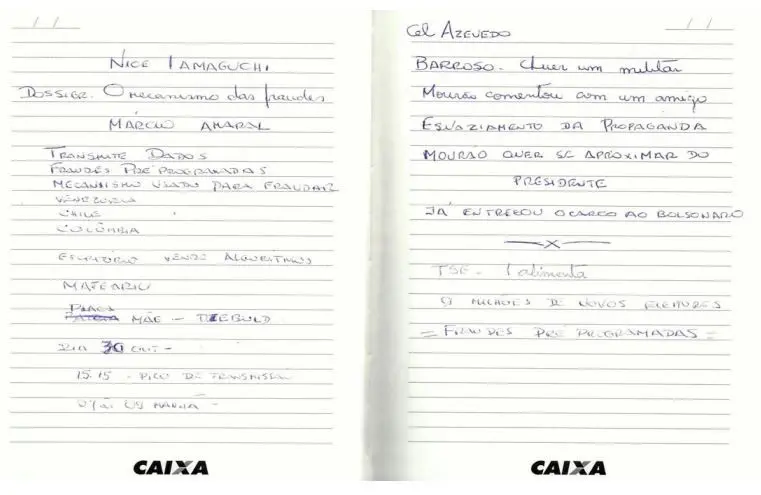 NICE IAMAGUCHI
DOSSIER. O mecanismo das fraudes
MÁRCIO AMARAL
TRANSMITE DADOS
FRAUDES PRÉ PROGRAMADAS
MECANISMO USADO PARA FRAUDAR
VENEZUELA
CHILE
COLÔMBIA
ESCRITÓRIO VENDE ALGORITMOS
PLACA
MÃE - DIEBOLD
DIA 30 OUT -
15:15 - PICO DE TRANSMISSÃO
09 MANHÃ -
CAIXA
Cel AZEVEDO
BARROSO. Quer um militar
Mourão comentou com um amigo
ESVAZIAMENTO DA PROPAGANDA
MOURÃO QUER SE APROXIMAR DO
PRESIDENTE
JÁ ENTREGOU O CARGO AO BOLSONARO
X
TSE - alimenta
9 MILHÕES DE NOVOS ELEITORES
= FRAUDES PRÉ PROGRAMADAS =
CAIXA